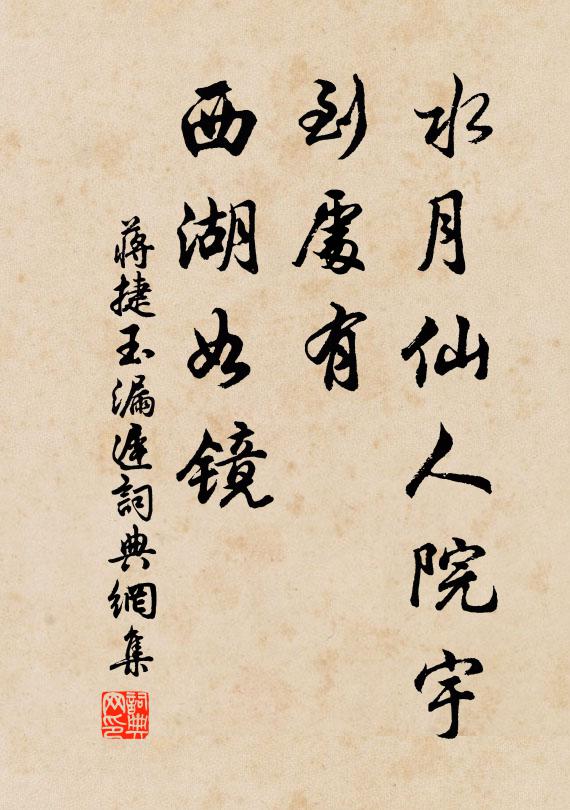 水月仙人院宇
到處有
西湖如鏡
蔣捷玉漏遲詞典網集
詞典网印